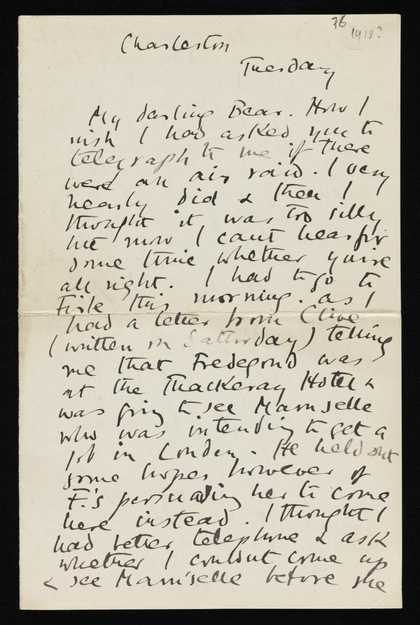 76
1918?
Charleston
Tuesday
My darling Bear. How I
wish I had asked you to
telegraph to me if there
were an air raid. I very
nearly did & then I
thought it was too silly
but now I cant hear for
some time whether you're
all right. I had to go to
Firle this morning. as I
had a letter from Clive
(written on Saturday) telling
me that Fredegond was
at the Thackeray Hotel &
was going to see Mamselle
who was intending to get a
job in London. He held out
some hopes however of
F.'s persuading her to come
here instead. I thought I
had better telephone & ask
whether I couldnt come up
& see Mam'selle before she